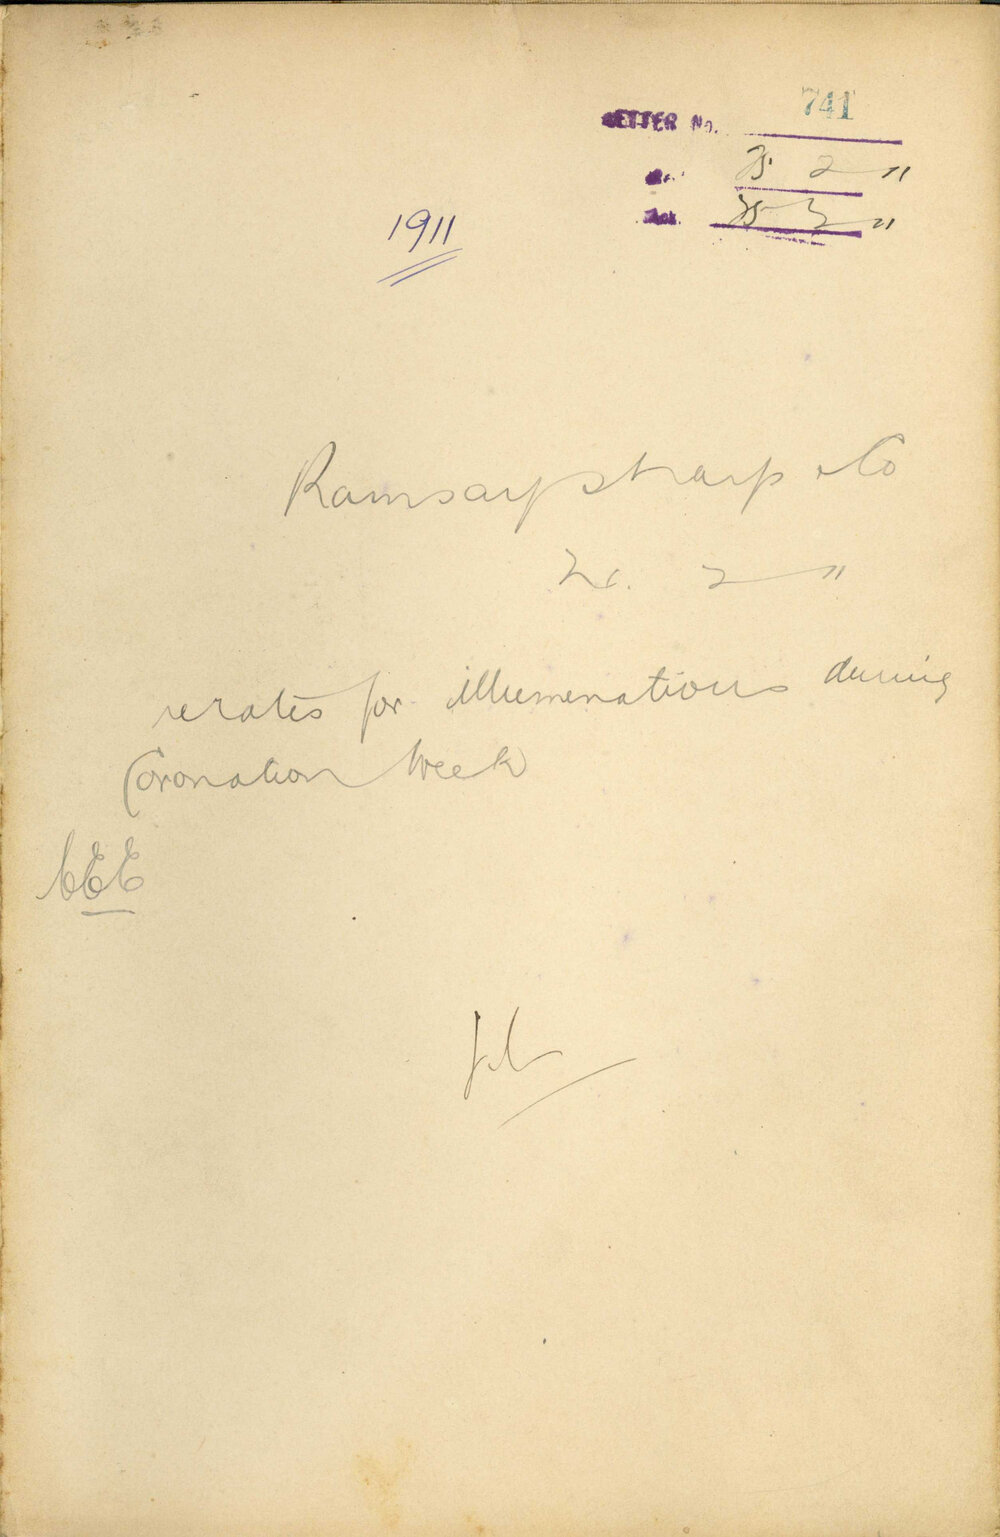 LETTER No. 741
25 2 11
25 2 11
1911
Ramsay Sharp & Co
2 11
re rates for illumenations during
Coronation Week
CEE